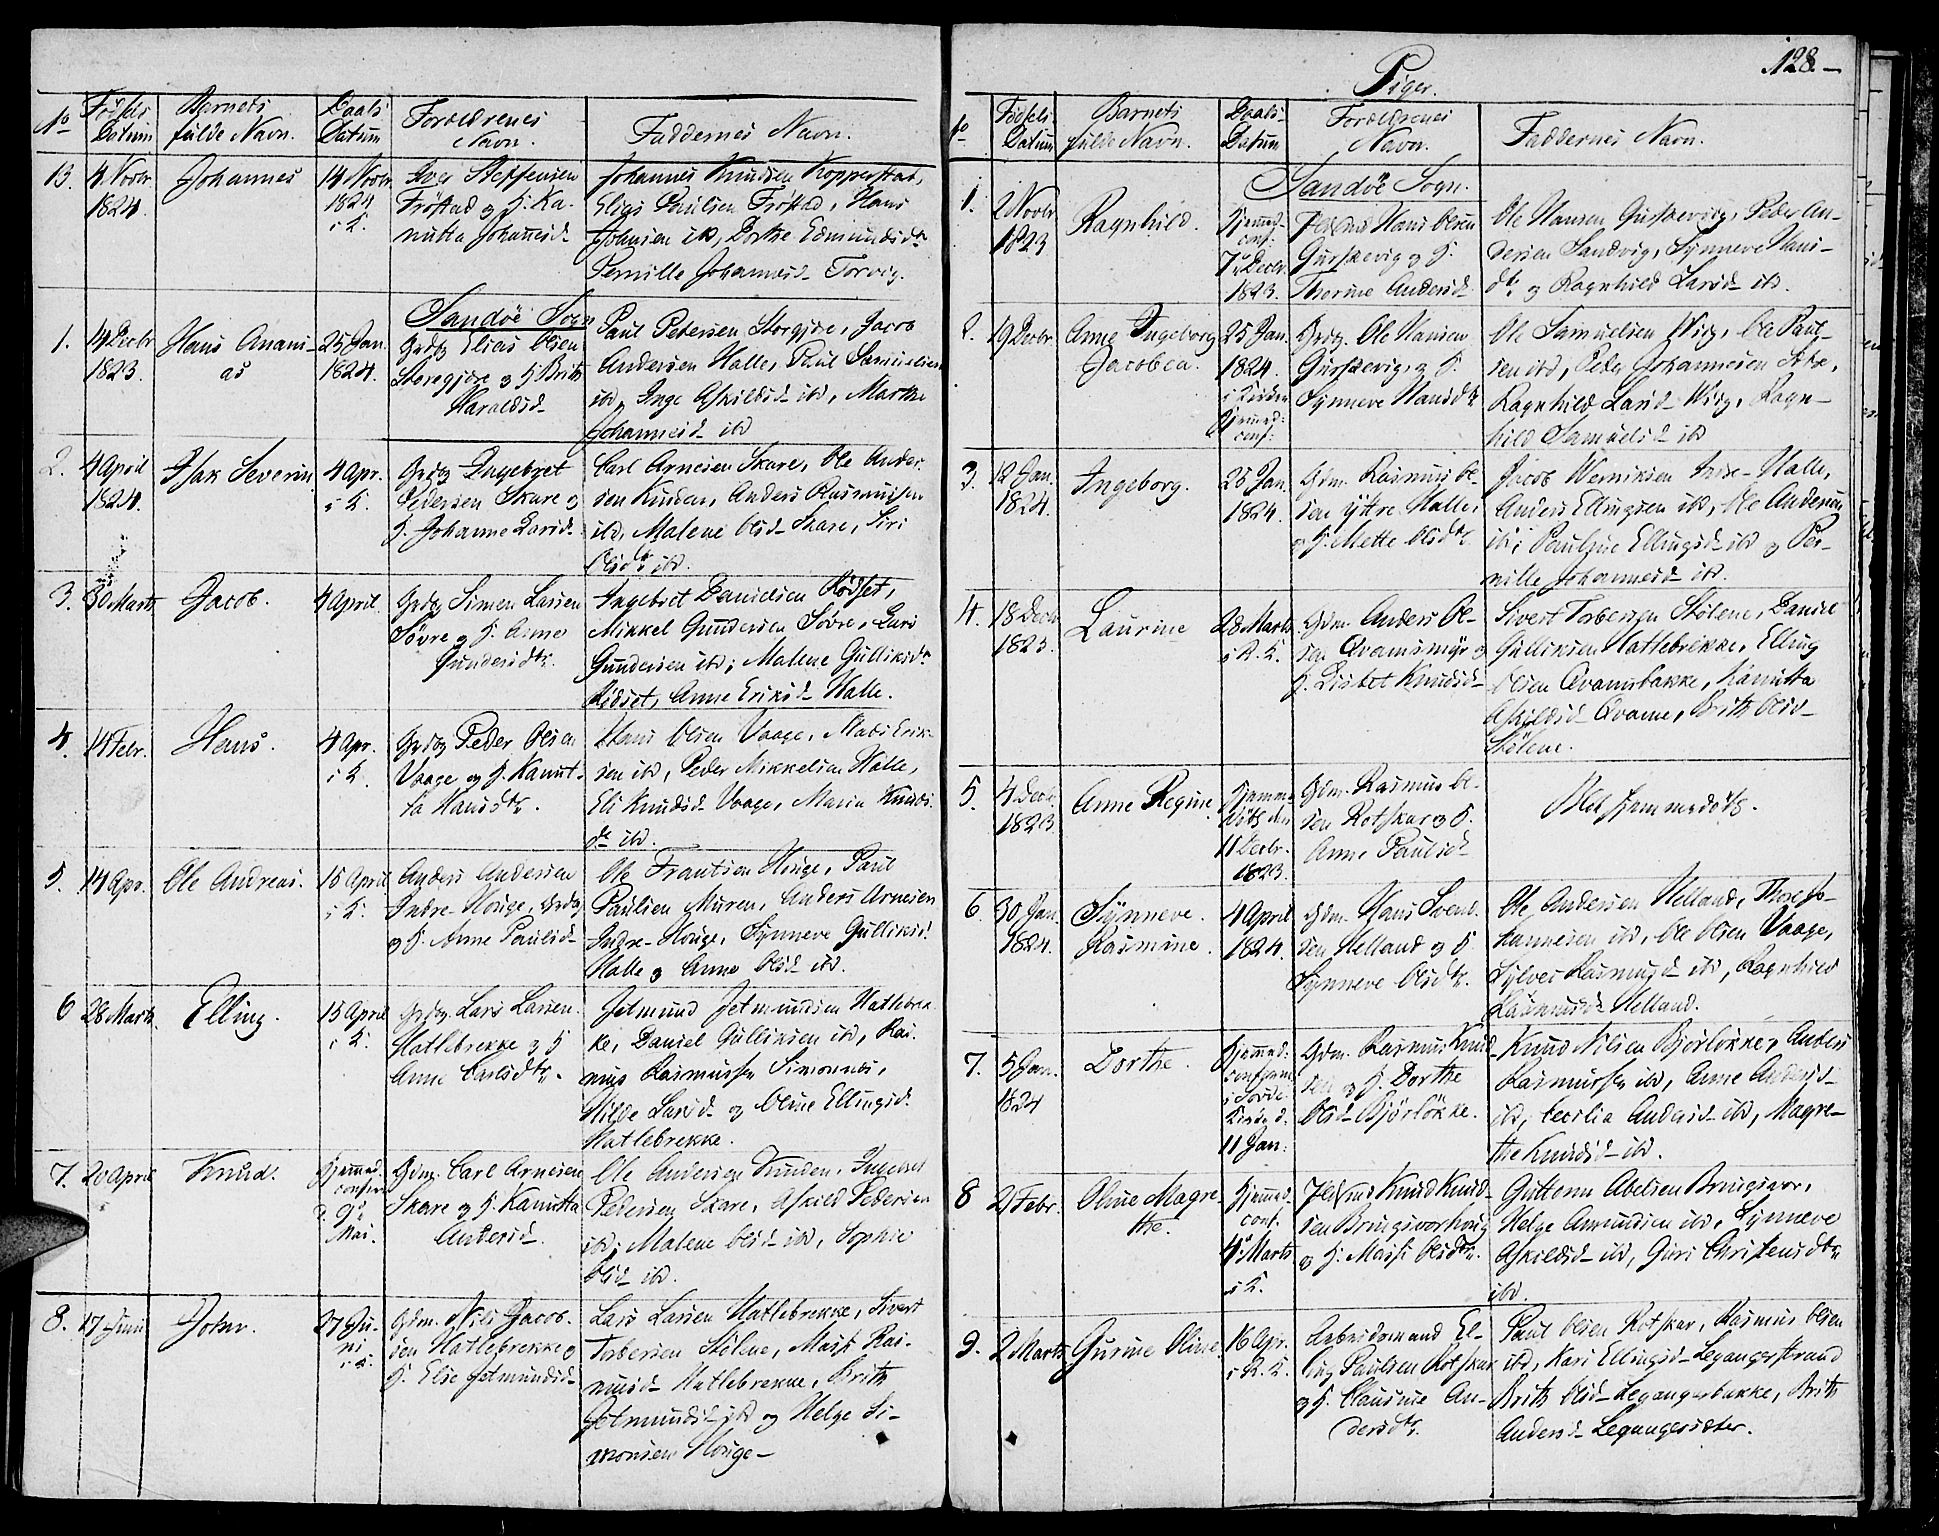 No
Fødsels Datum
Barnets fulde Navn.
Daabs Datum
Forældrenes Navn.
Faddernes Navn.
13. 4 Novbr 1824.
Johannes
14 Novbr 1824 i K.
Iver Steffensen
Frøstad og H. Ka-
nutta Johannesd.
Johannes Knudsen Kopperstad,
Elias Paulsen Frøstad, Hans
Johansen ibd, Dorthe Edmundsdtr
Pernille Johannesd. Torvig.
Sandöe Sogn
1. 14 Decbr 1823.
Hans Anani-
as
25 Jan. 1824.
Grdbg Elias Olsen
Storegjøre og H. Brite
Haraldsd.
Paul Petersen Storgjøre, Jacob
Andersen Halle, Poul Samuelsen
ibd, Inge Askildsd. ibd, Marthe
Johannesd. ibd
2. 4 April 1824.
Isak Severin
4 Apr. i K.
Grdbg Ingebret
Pedersen Skare og
H. Johanne Larsd.
Carl Arnesen Skare, Ole Ander-
sen Kunden, Anders Rasmussen
ibd, Malene Olsd. Skare, Siri
Olsdtr ibd.
3. 30 Marts
Jacob.
4 April.
Grdbg Simen Larsen
Søvre og H. Anne
Gundersdtr.
Ingebret Danielsen Rødset,
Mikkel Gundersen Søvre, Lars
Gundersen ibd, Malene Gulliksdtr
Rødset, Anne Eriksd. Halle.
4. 14 Febr.
Hans.
4 Apr. i K.
Grdbg Peder Olsen
Vaage og H. Kanut-
ta Hansdtr.
Hans Olsen Vaage, Mads Erik-
sen ibd, Peder Mikkelsen Halle,
Eli Knudsd. Vaage, Maria Knuds-
dtr ibd.
5. 14 Apr.
Ole Andreas.
15 April i K.
Anders Andersen
Indre-Houge, Grdbg
og H. Anne Paulsd.
Ole Frantsen Houge, Paul
Paulsen Muren, Anders Arnesen
Indre-Houge, Synneve Gulliksd.
Halle og Anne Olsd. ibd.
6 28 Marts.
Elling.
15 April i K.
Grdbg Lars Larsen
Hatlebrekke og H
Anne Carlsdtr.
Jetmund Jetmundsen Hatlebrek-
ke, Daniel Gulliksen ibd, Ras-
mus Rasmussen Simonnes,
Hilde Larsd. og Oline Ellingsd.
Hatlebrekke.
7. 20 April
Knud.
Hjemmed. confir. d. 9de Mai.
Gdm. Carl Arnesen
Skare og H. Kanutta
Andersd.
Ole Andersen Kunden, Ingebret
Pedersen Skare, Askild Pedersen
ibd, Malene Olsd. ibd, Sophie
Olsd. ibd.
8. 17 Juni
John.
27 Ju-
ni
i K.
Gdm. Nils Jacob-
sen Hatlebrekke og
H. Else Jetmundsd.
Lars Larsen Hatlebrekke, Sivert
Torbersen Stölene, Masi Ras-
musd. Hatlebrekke, Brite
Jetmundsd. ibd og Helge Si-
monsen Houge.
128.
Piger.
No
Fødsels Datum
Barnets fulde Navn.
Daabs- Datum
Forældrenes Navn.
Faddernes Navn.
Sandöe Sogn.
1. 2 Novbr 1823
Ragnhild.
Hjemmed- conf: 7de Decbr. 1823.
Hans Olsen
Gurskevig og H.
Therine Andersd.
Ole Hansen Gurskevig, Peder An-
dersen Sandvig, Synneve Hans-
dtr og Ragnhild Larsd. ibd.
2. 19 Decbr.
Anne Ingeborg
Jacobea.
25 Jan. 1824. i Kirken Hjemmed: conf:
Grdbg. Ole Hansen
Gurskevig og H.
Synneve Hansdtr
Ole Samuelsen Wiig, Ole Paul-
sen ibd, Peder Johannesen,
Ragnhild Larsd. Wiig, Ragn-
hild Samuelsd. ibd
3. 12 Jan. 1824.
Ingeborg.
25 Jan. 1824.
Gdm. Rasmus Ol-
sen yttre Halle,
og H. Mette Olsdtr.
Jacob Werniksen Indre-Halle,
Anders Ellingsen ibd, Ole Andersen
ibd, Pauline Ellingsd. ibd og Per-
nille Johannesd. ibd.
4. 18 Decbr 1823.
Laurine
28 Marts i R. K.
Gdm. Anders Ol-
sen Qvamsmyr og
H. Lisbet Knudsd.
Sivert Torbersen Stölene, Daniel
Gulliksen Hatlebrekke, Elling
Olsen Qvamsbakke, Kanutta
Askildsd. Qvame, Brite Olsd.
Stölene.
5. 4 Decbr. 1823
Anne Regine.
Hjemme døbt den 11 Decbr. 1823.
Gdm. Rasmus Ol-
sen Rotskar og H.
Anne Paulsd.
Blot hjemmedøbt.
6. 30 Jan. 1824.
Synneve
Rasmine.
4 April 1824.
Gdm. Hans Svend-
sen Helland og H.
Synneve Olsdtr.
Ole Andersen Helland, Thore Jo-
hannesen ibd, Ole Olsen Vaage,
Sylvei Rasmusd. ibd, Ragnhild
Rasmusd. Helland.
7. 5 Jan. 1824
Dorthe.
11 Jan:
Gdm. Rasmus Knud-
sen og H. Dorthe
Olsd. Bjørløkke.
Knud Nilsen Bjørløkke, Anders
Rasmussen ibd, Anne Andersd.
ibd, Cecilia Andersd. ibd, Magre-
the Knudsd. ibd.
8 21 Febr.
Oline Magre-
the.
Hjemmed- conf. 4de Marts i K.
Knud Knud-
sen Bringsvorhoug
og H. Masi Olsdtr.
Guttorm Abelsen Bringsvor,
Helge Amundsen ibd, Synneve
Askildsd. ibd, Guri Christensdtr
ibd.
9. 2 Marts
Gurine Oline.
16 Apr. i R. K.
Arbeidsmand El-
ling Paulsen Rotskar
og H. Clausine An-
dersdtr.
Paul Olsen Rotskar, Rasmus Olsen
ibd, Kari Ellingsd. Legangerstrand
Brite Olsd. Legangerbakke, Brite
Andersd. Legangersæter.